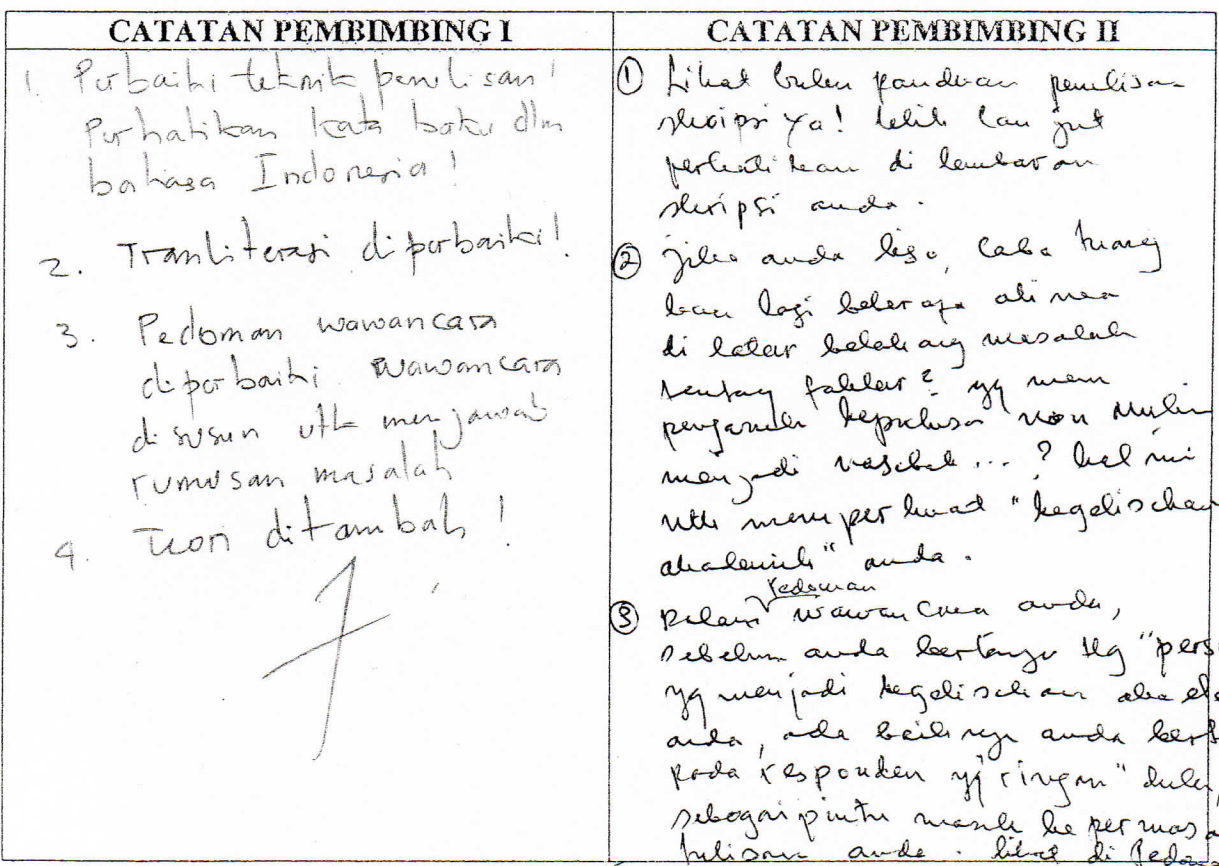 CATATAN PEMBIMBING I
1. Perbaiki teknik penulisan!
Perhatikan kata baku dlm
bahasa Indonesia!
2. Tranliterasi diperbaiki!
3. Pedoman wawancara
diperbaiki wawancara
disusun utk menjawab
rumusan masalah
4. Teori ditambah!
CATATAN PEMBIMBING II
① Lihat buku panduan penulisan
skripsi ya! lebih lanjut
perhatikan di lembaran
skripsi anda.
② jika anda bisa, coba tuang
kan lagi beberapa alinea
di latar belakang masalah
tentang faktor² yg mem
pengaruhi keputusan non Muslim
menjadi nasabah ...? hal ini
utk memperkuat "kegelisahan
akademik" anda.
③ Dalam Pedoman wawancara anda,
sebelum anda bertanya ttg "pers
yg menjadi kegelisahan akade
anda, ada baiknya anda bert
pada responden yg "ringan" dulu,
sebagai pintu masuk ke permasa
anda. lihat di Pedom